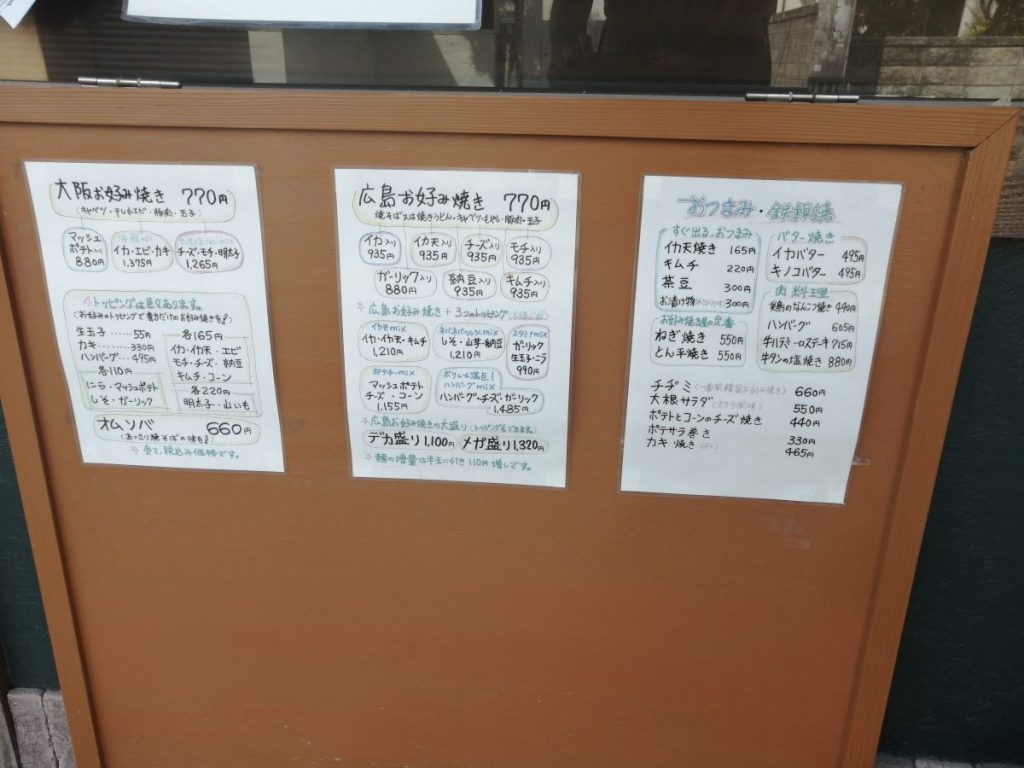 大阪お好み焼き 770円
(キャベツ・干しエビ・豚肉・玉子)
マッシュ
ポテト入り
880円
海鮮mix
イカ・エビ・カキ
1,375円
チーズ・モチ・明太子
1,265円
*トッピングは色々あります。
(お好みのトッピングで貴方だけのお好み焼きを!)
生玉子‥‥‥55円
カキ‥‥‥330円
ハンバーグ‥‥495円
各110円
にら・マッシュポテト
しそ・ガーリック
各165円
イカ・イカ天・エビ
モチ・チーズ・納豆
キムチ・コーン
各220円
明太子・山いも
オムソバ 660円
(あっさり焼そばの味を!)
*全て、税込み価格です。
広島お好み焼き 770円
焼そば又は焼きうどん・キャベツ・もやし・豚肉・玉子
イカ入り
935円
イカ天入り
935円
チーズ入り
935円
モチ入り
935円
ガーリック入り
880円
納豆入り
935円
キムチ入り
935円
*広島お好み焼き+3つのトッピング
イカ天mix
イカ・イカ天・キムチ
1,210円
ネバネバヘルシーmix
しそ・山芋・納豆
1,210円
スタミナmix
ガーリック
生玉子・ニラ
990円
ポテチーmix
マッシュポテト
チーズ・コーン
1,155円
ボリューム満点!
ハンバーグmix
ハンバーグ・チーズ・ガーリック
1,485円
*広島お好み焼きの大盛り(トッピングもできます。)
デカ盛り1,100円 メガ盛り1,320円
*麺の増量は半玉に付き110円増しです。
おつまみ・鉄板焼
すぐ出る、おつまみ
イカ天焼き 165円
キムチ 220円
茶豆 300円
お漬け物 300円
お好み焼き屋の定番
ねぎ焼き 550円
とん平焼き 550円
バター焼き
イカバター 495円
キノコバター 495円
肉料理
鶏のなんこつ焼き 440円
ハンバーグ 605円
牛ハラミーロステーキ 715円
牛タンの塩焼き 880円
チヂミ(一番風韓国お好み焼き) 660円
大根サラダ 550円
ポテトとコーンのチーズ焼き 440円
ポテサラ巻き 330円
カキ焼き 465円